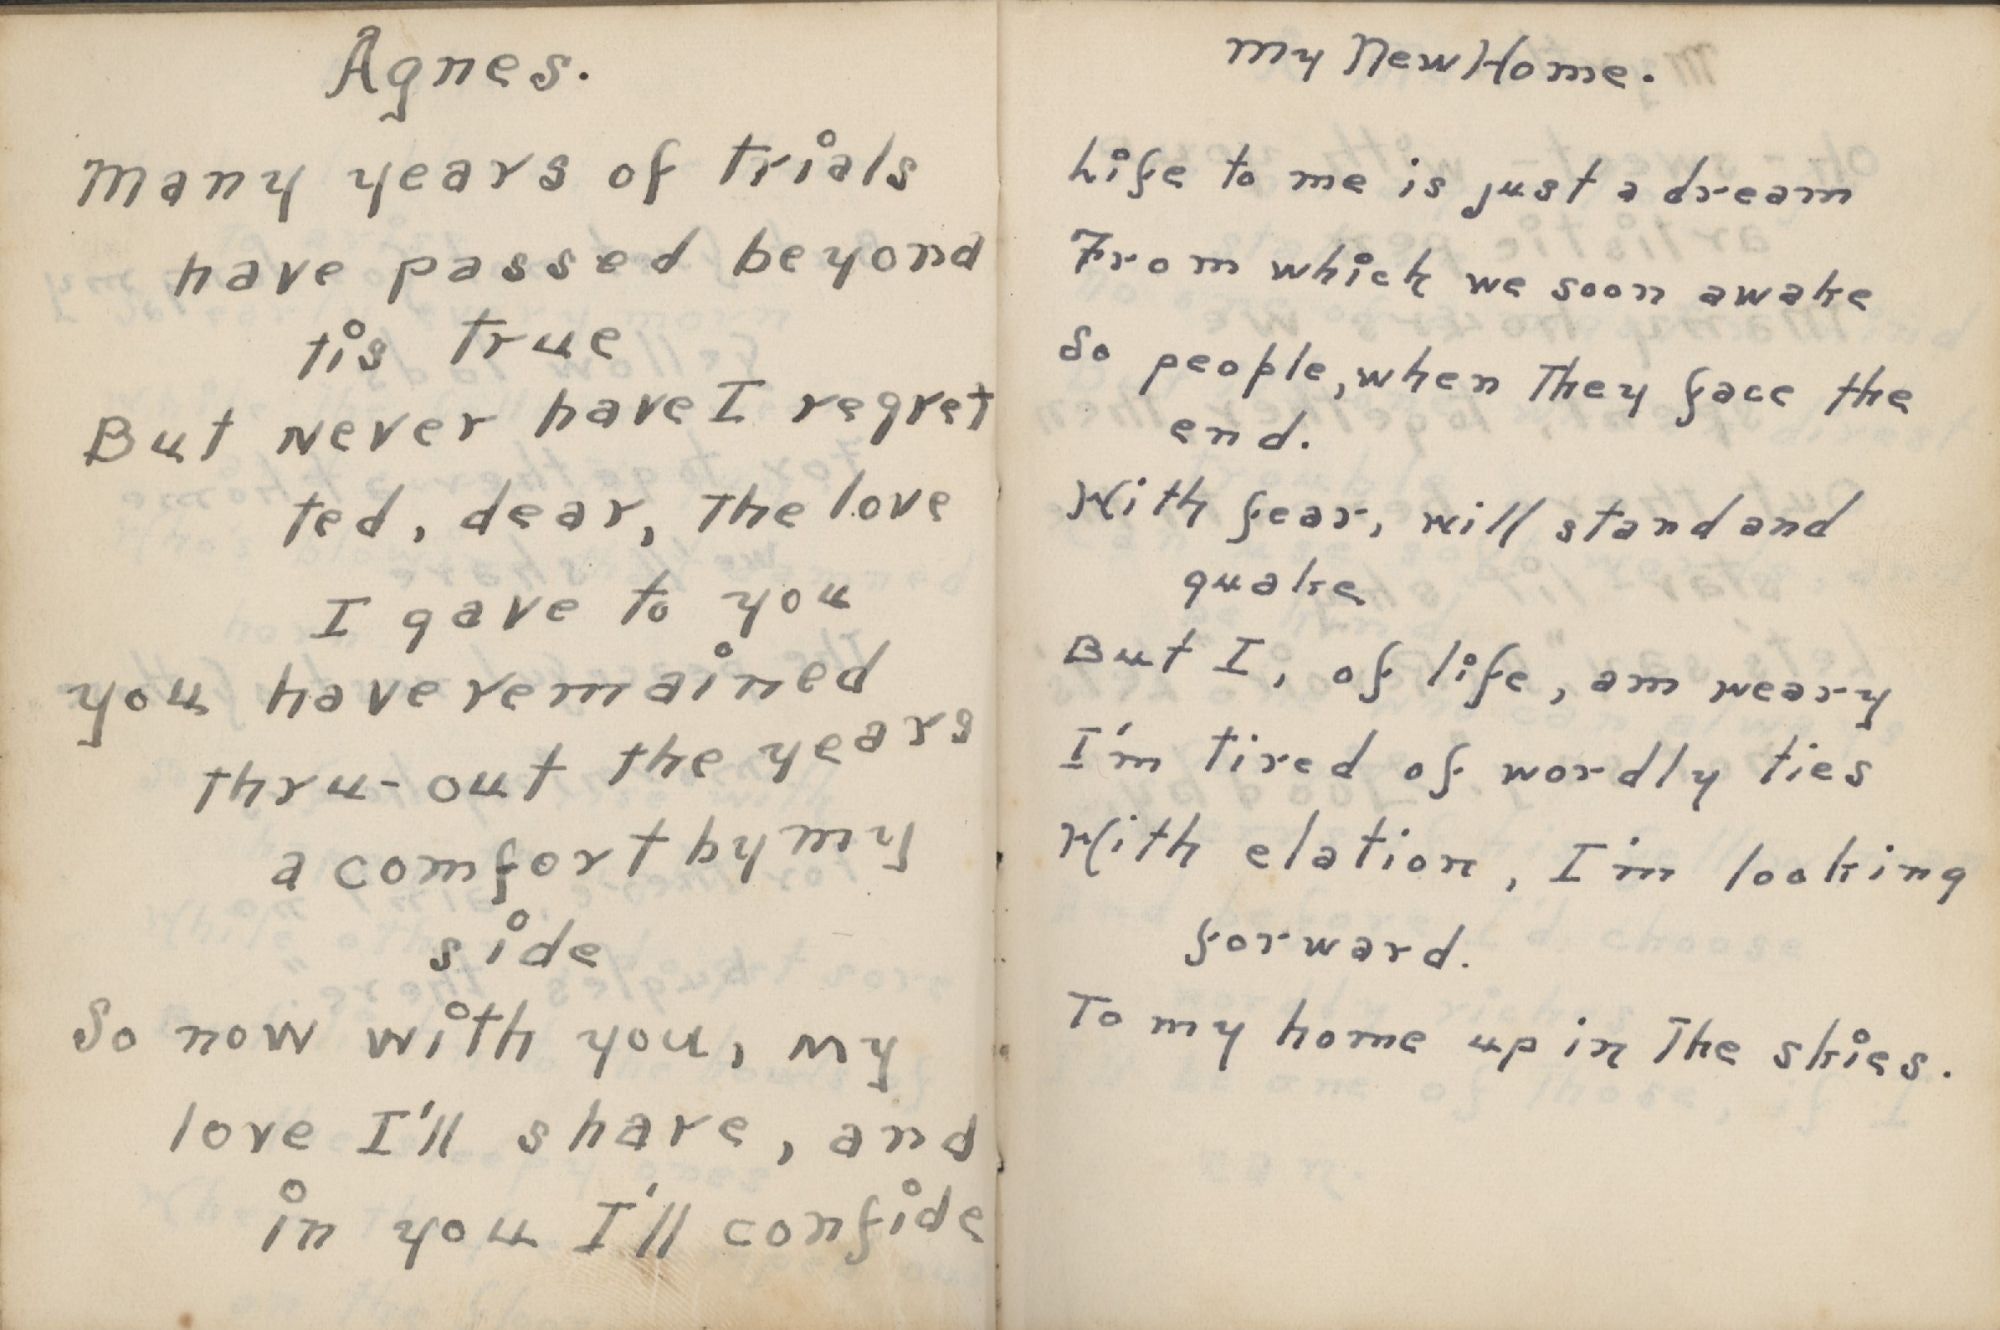 Agnes.
Many years of trials
have passed beyond
tis true
But never have I regret
ted, dear, The love
I gave to you
you have remained
thru-out the years
a comfort by my
side
So now with you, my
love I'll share, and
in you I'll confide
My New Home.
Life to me is just a dream
From which we soon awake
So people, when They face the
end.
With fear, will stand and
quake
But I, of life, am weary
I'm tired of wordly ties
With elation, I'm looking
forward.
To my home up in The skies.